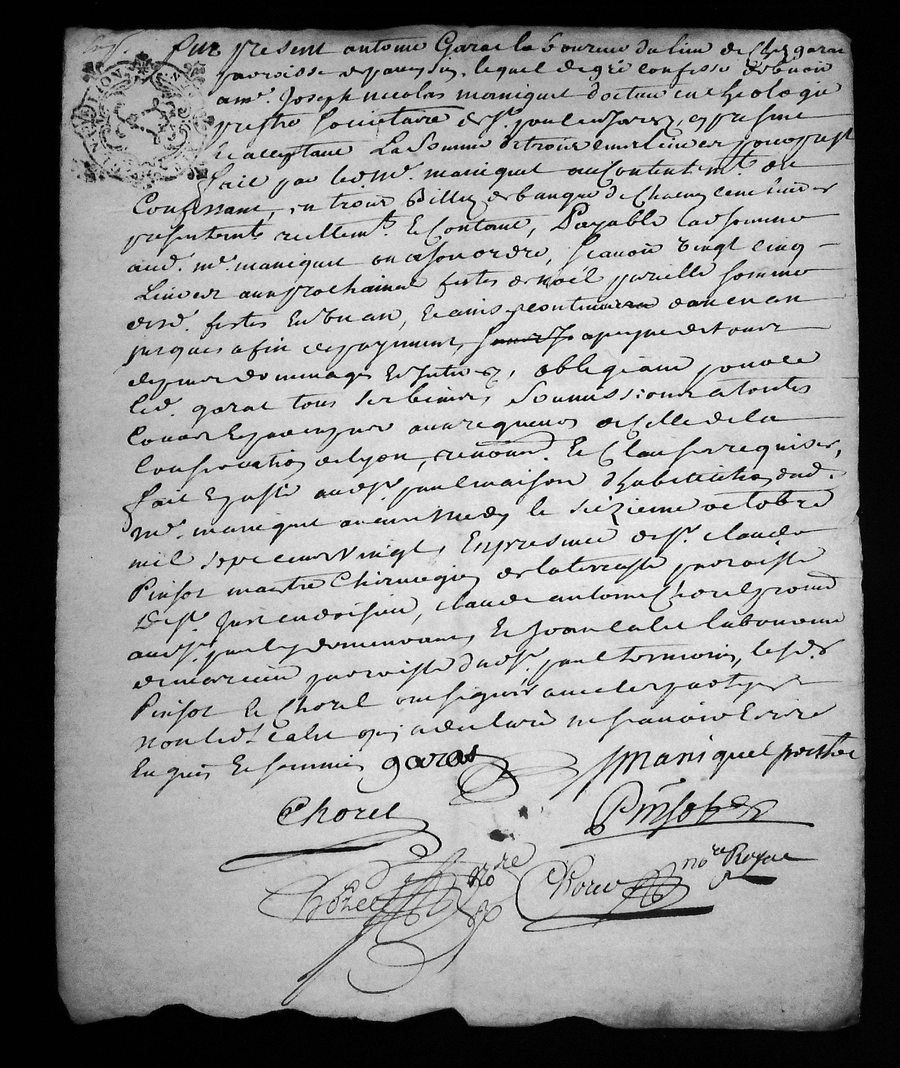 fut present antoine Garat laboureur du lieu de Chez garat
parroisse de pavezin, lequel de gré confesse debvoir
a mr. Joseph nicolas maniquet docteur en theologie
prestre societaire de st. paul en Jarez, cy present
et acceptant La Somme de trois cens livres pour prest
fait par led. mr. maniquet au contentemt. du
Confessant, en trois Billets de banque de Chacun cent livres
presentemt. reellemt. et Contant, Payable lad. somme
aud. mr. maniquet ou a son ordre, scavoir Vingt cinq
Livres aux prochaines festes de noël pareille somme
desd. festes En un an, et ainsy continuera dan en an
jusques a fin de payement, a peyne de tous
despens dommages et interests, obligeant pour ce
led. garat tous ses biens, soumissions a toutes
Cours Et par exprés aux rigueurs de Celle de la
Conservation de lyon, renond. Et Clauses requises,
fait Et passé aud. st. paul maison d'habitation dud.
mr. maniquet avant midy le seizieme octobre
mil sept cens vingt, En presence de sr. claude
Pinsot maitre Chirurgien de laterrasse parroisse
de st. Just en doisieu, claude antoine Chorel grand
aud. st. paul y demeurant, Et Jean laboureur
de parroisse dud. st. paul temoins, lesd. srs
Pinsot Et Chorel ont signé avec les partyes
non led. qui a declaré ne scavoir Escrire
Enquis Et sommé garat Maniquet prestre
Chorel Pinsot
Chorel Nore Chorel nore Royal